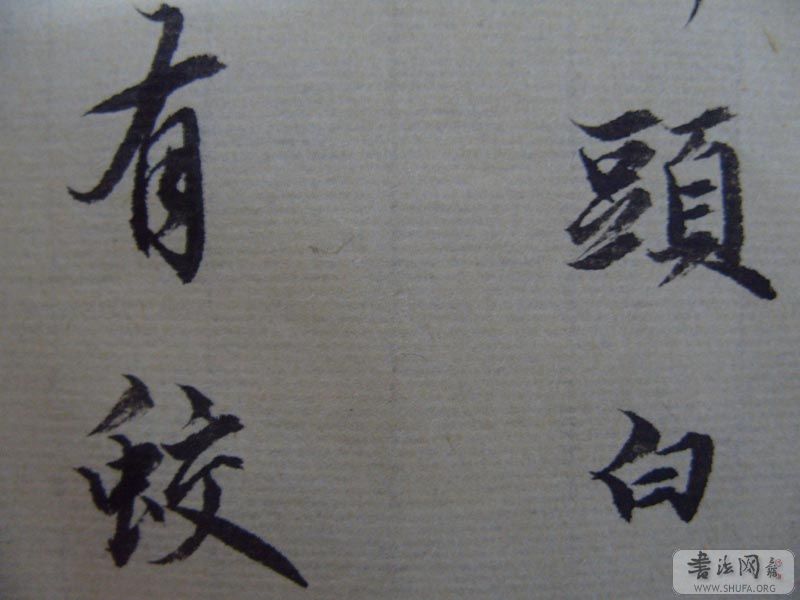 頭白
有蛟
書法网
WWW.SHUFA.ORG